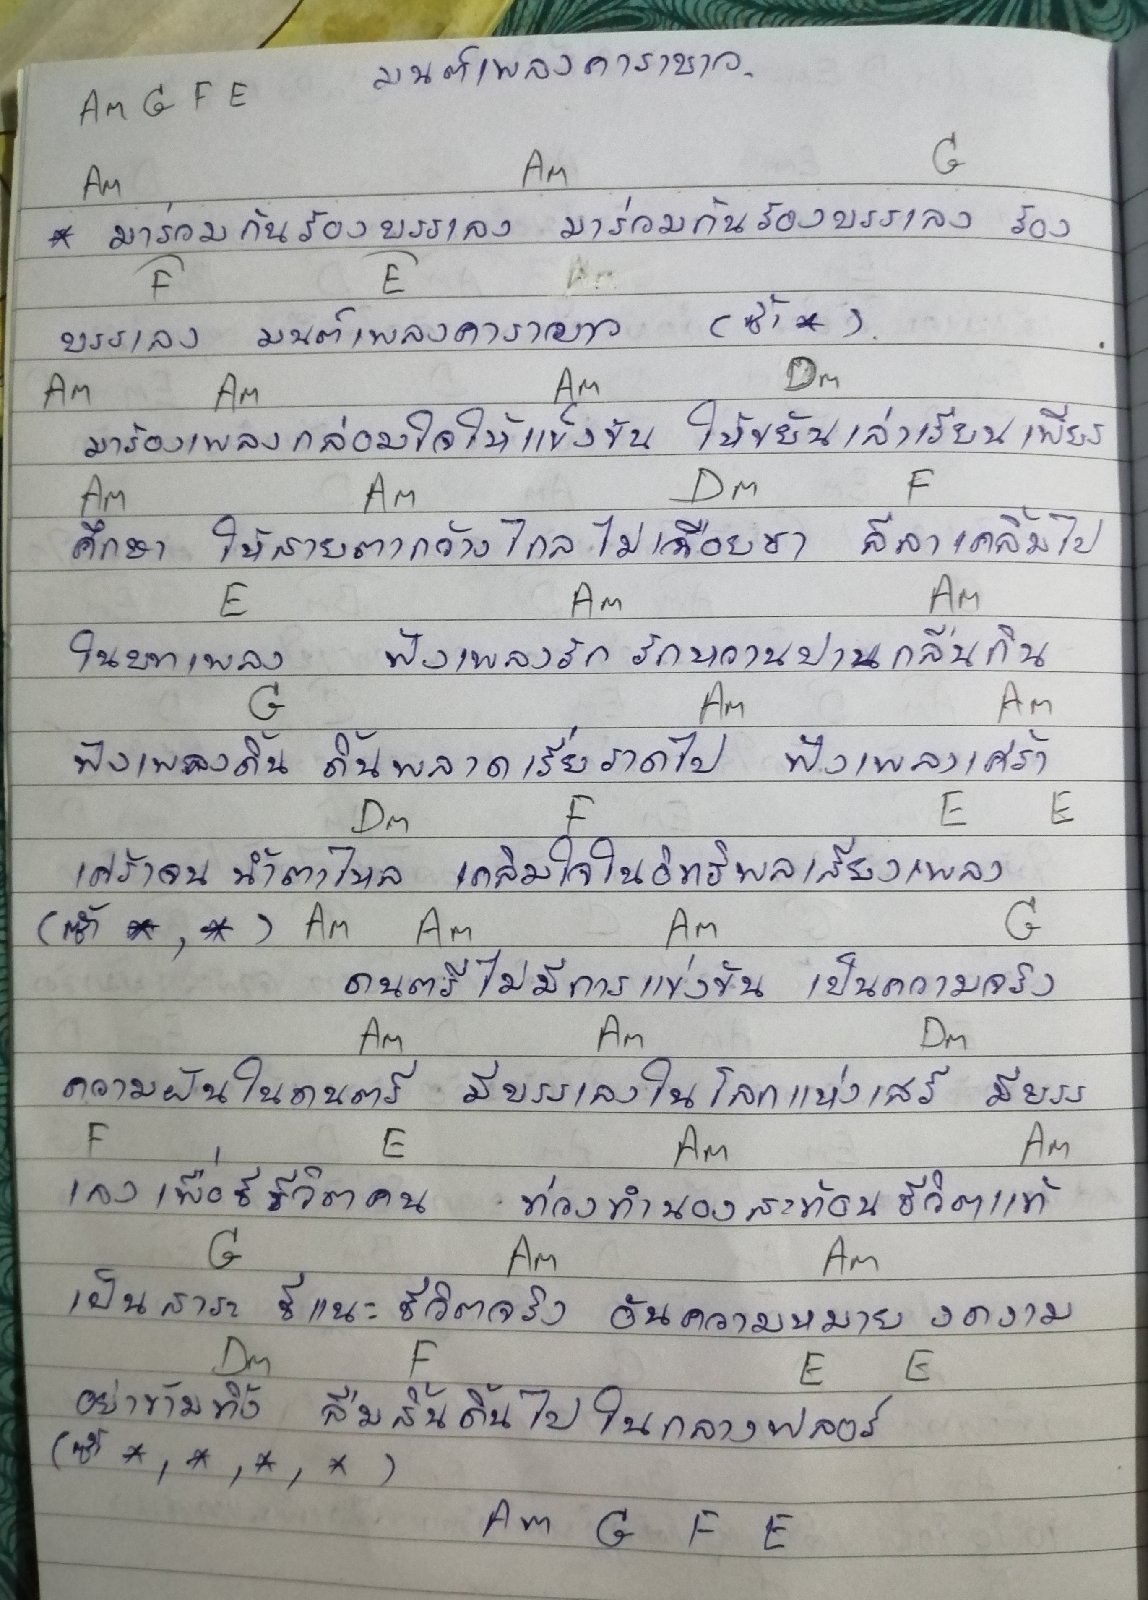 มนต์เพลงคาราบาว
Am G F E
Am Am G
* มาร่วมกันร้องบรรเลง มาร่วมกันร้องบรรเลง ร้อง
F E Am
บรรเลง มนต์เพลงคาราบาว (ซ้ำ *)
Am Am Am Dm
มาร้องเพลงกล่อมใจให้แข็งขัน ให้ขยันเล่าเรียนเพียร
Am Am Dm F
ศึกษา ให้สายตากว้างไกลไม่เฉื่อยชา ลีลาเคลิ้มไป
E Am Am
ในบทเพลง ฟังเพลงรัก รักหวานปานกลืนกิน
G Am Am
ฟังเพลงดิ้น ดิ้นพลาดเรี่ยราดไป ฟังเพลงเศร้า
Dm F E E
เศร้าจนน้ำตาไหล เคลิมใจในอิทธิพลเสียงเพลง
(ซ้ำ *, *) Am Am Am G
ดนตรีไม่มีการแข่งขัน เป็นความจริง
Am Am Dm
ความฝันในดนตรี มีบรรเลงในโลกแห่งเสรี มีบรร
F E Am Am
เลงเพื่อชีชีวิตคน ท่วงทำนองสะท้อนชีวิตแท้
G Am Am
เป็นสาระ ชี้แนะชีวิตจริง อันความหมาย งดงาม
Dm F E E
อย่าข้ามทิ้ง ลืมสิ้นดิ้นไปในกลางฟลอร์
(ซ้ำ *, *, *, *)
Am G F E